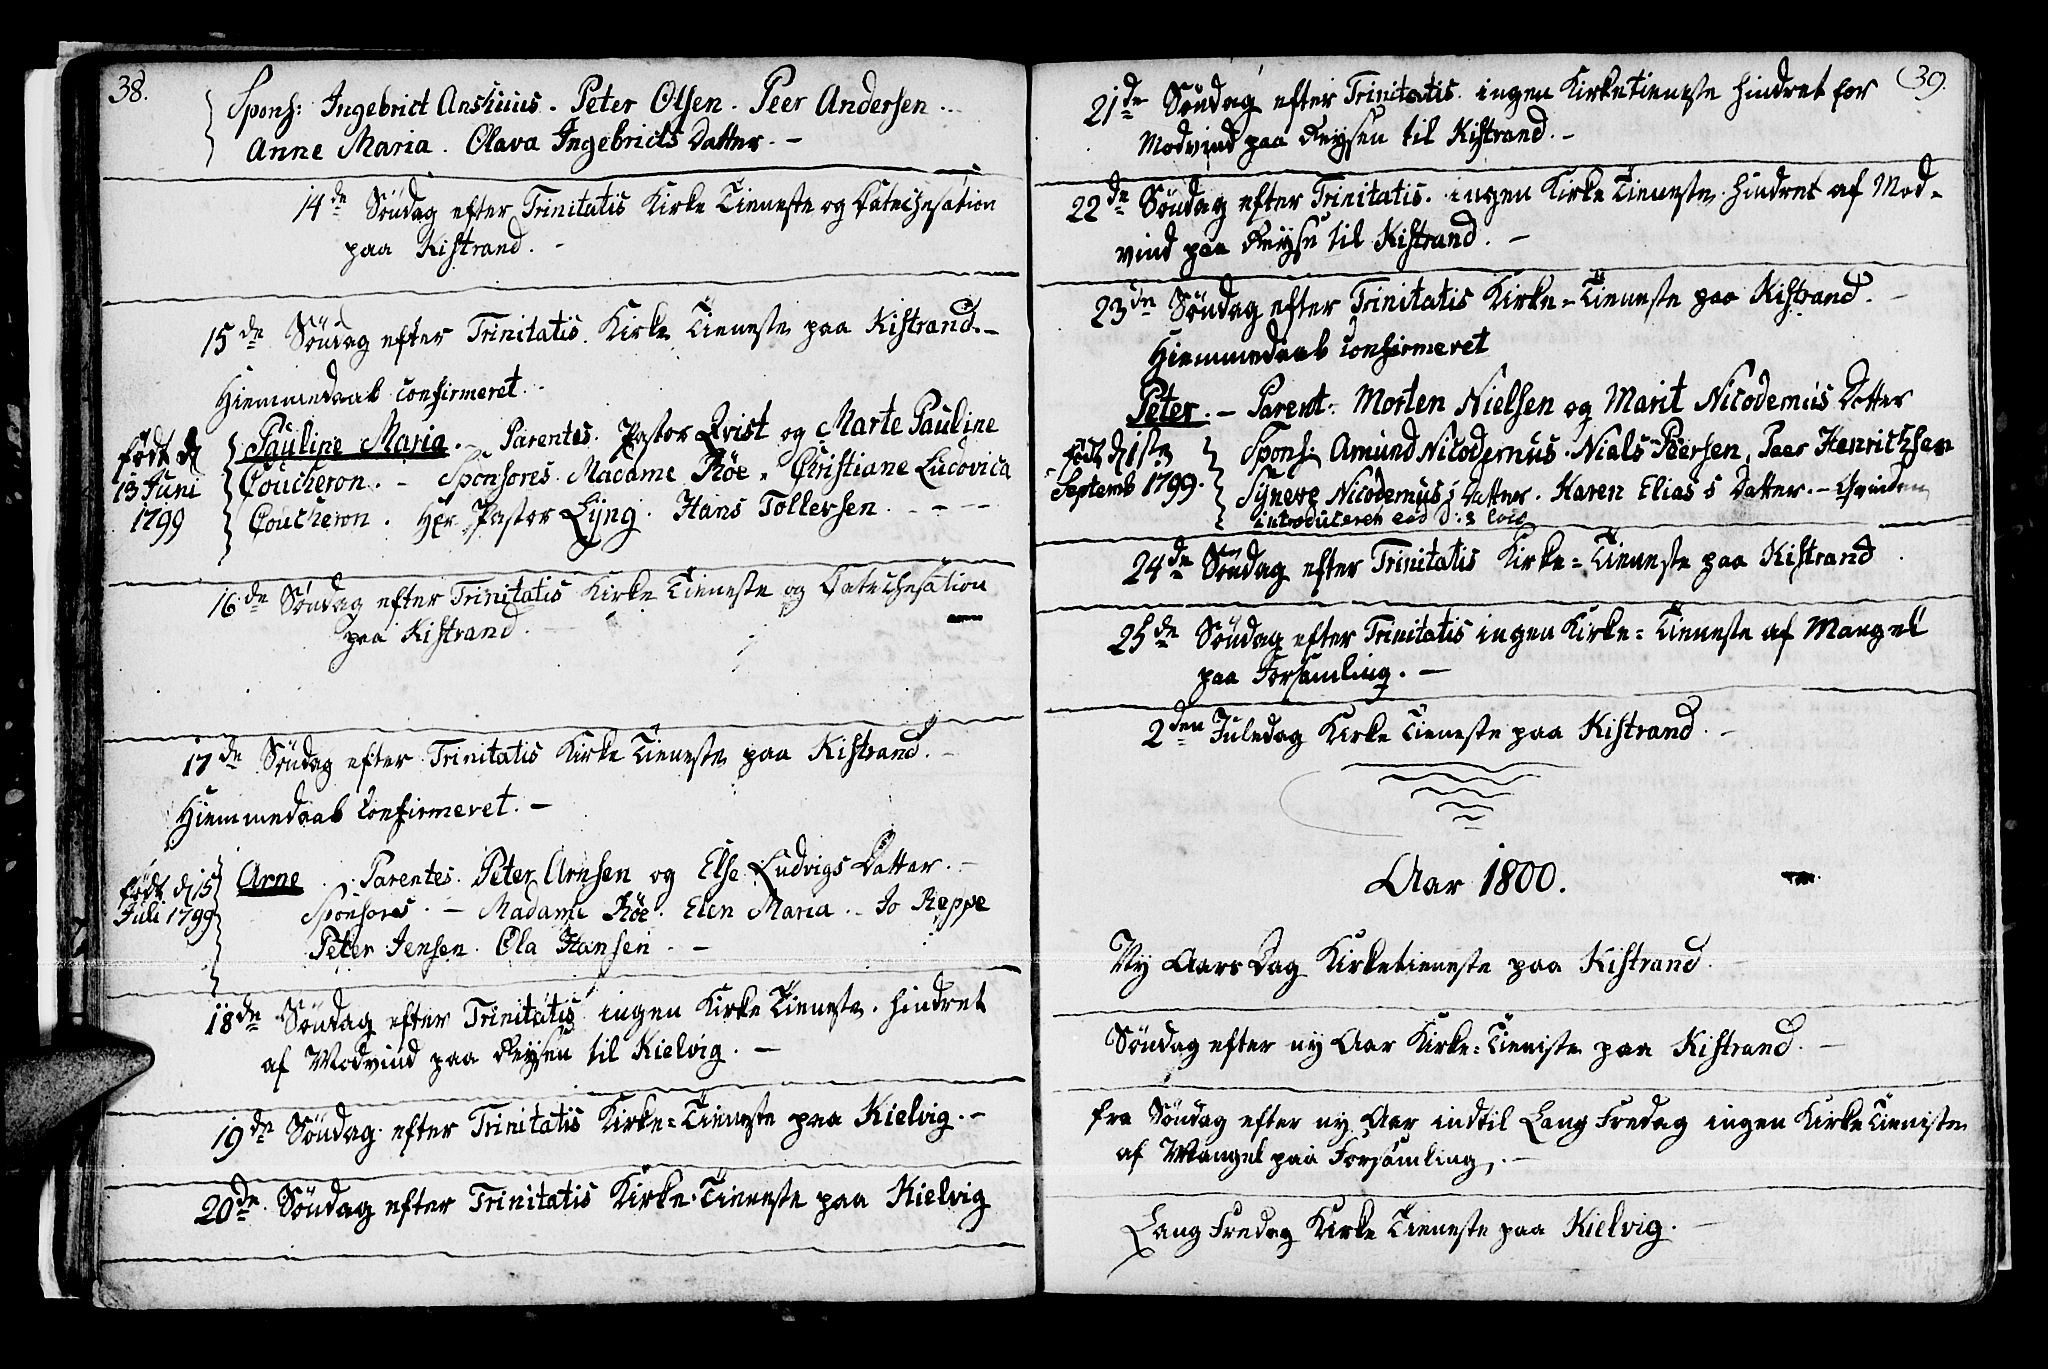 38.
Spons: Ingebrict Anshiuus. Peter Olsen. Peer Andersen..
Anne Maria. Olava Ingebricts Datter. -
14de Söndag efter Trinitatis Kirke Tieneste og Catechesation
paa Kistrand. -
15de Söndag efter Trinitatis. Kirke Tieneste paa Kistrand. -
Hiemmedaab confirmeret.
født d
13 Juni
1799
Pauline Maria. - Parentes. Pastor Qvist og Marte Pauline
Coucheron. - Sponsores. Madame Röe. Christiane Ludovica
Coucheron. Hr. Pastor Lyng. Hans Tollersen. - - -
16de Söndag efter Trinitatis Kirke Tieneste og Catechesation
paa Kistrand. -
17de Söndag efter Trinitatis Kirke Tieneste paa Kistrand. -
Hiemmedaab Confirmeret. -
født d 15
Juli 1799
Arne . Parentes. Peter Arnsen og Else Ludvigs Datter. -
Sponsores. - Madame Röe. Elen Maria. - Jo Reppe
Peter Jensen. Ola Hansen. -
18de Söndag efter Trinitatis ingen Kirke Tieneste. hindret
af Modvind paa Reysen til Kielvig. -
19de Söndag efter Trinitatis Kirke=Tieneste paa Kielvig. -
20de Söndag efter Trinitatis Kirke=Tieneste paa Kielvig
39.
21de Söndag efter Trinitatis. ingen Kirketieneste hindret for
Modvind paa Reysen til Kistrand. -
22de Söndag efter Trinitatis. ingen Kirke Tieneste hindret af Mod-
vind paa Reyse til Kistrand. -
23de Söndag efter Trinitatis Kirke=Tieneste paa Kistrand. -
Hiemmedaab confirmeret
Peter. - Parent: Morten Nielsen og Marit Nicodemus Datter
født d 1ste
Septemb 1799.
Spons: Amund Nicodemus. Niels Peersen. Peer Henrichsen
Synere Nicodemus's Datter. Karen Elias's Datter. - Qvinden
introduceret
24de Söndag efter Trinitatis Kirke=Tieneste paa Kistrand
25de Söndag efter Trinitatis ingen Kirke=Tieneste af Mangel
paa Forsamling. -
2den Juledag Kirke Tieneste paa Kistrand. -
Aar 1800.
Ny Aars Dag Kirketieneste paa Kistrand.
Söndag efter ny Aar Kirke=Tieniste paa Kistrand. -
fra Söndag efter ny Aar indtil Lang Fredag ingen Kirke Tieniste
af Mangel paa Forsamling. -
Lang Fredag Kirke Tieneste paa Kielvig. -